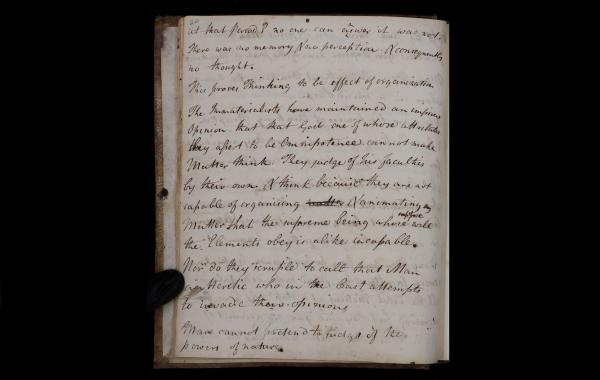 at that period? no one can answer it was not.
There was no memory & no perception & consequently
no thought.
This proves Thinking to be effect of organization
The Immaterialists have maintained an impious
Opinion that that God one of whose attributes
they affect to be Omnipotence cannot make
Matter think. They judge of his faculties
by their own & think because they are not
capable of organising matter & animating
Matter that the supreme being whose will
the Elements obey is alike incapable.
Nor do they scruple to call that Man
an Heretic who in the least attempts
to invade their opinions
Man cannot pretend to judge of the
powers of nature.